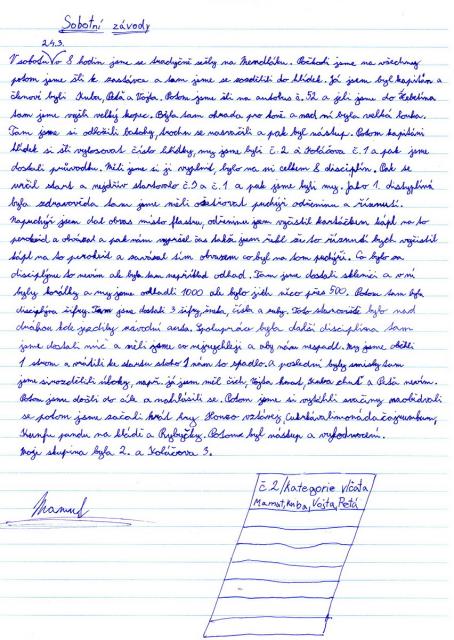 Sobotní závody
24.3.
V sobotu v 8 hodin jsme se tradičně sešly na Mendláku. Počkali jsme na všechny
potom jsme šli k zastávce a tam jsme se rozdělili do hlídek. Já jsem byl kapitán a
členové byli Kuba, Péťa a Vojta. Potom jsme šli na autobus č. 52 a jeli jsme do
tam jsme vyšli velký kopec. Byla tam ohrada pro koně a nad ní byla velká louka.
Tam jsme si odložili batohy, trochu se nasvačili a pak byl nástup. Potom kapitáni
hlídek si šli vylosovat číslo hlídky, my jsme byli č. 2 a Koláčova č. 1 a pak jsme
dostali průvodku. Měli jsme si ji vyplnit, bylo na ní celkem 8 disciplín. Pak se
určil start a nejdřív startovalo č. 3 a č. 1 a pak jsme byli my. Jako 1. disciplína
byla zdravověda tam jsme měli ošetřovat puchýř odřeninu a říznutí.
Na puchýř jsem dal obvaz místo flastru, odřeninu jsem vyčistil kartáčkem kápl na to
peroxid a obvázal a pak nám vypršel čas takže jsem řekl že to říznutí bych vyčistil
kápl na to peroxid a zavázal tím obvazem co byl na tom puchýři. Co bylo za
disciplínu to nevím ale byla tam například odhad. Tam jsme dostali sklenici a v ní
byly korálky a my jsme odhadli 1000 ale bylo jich něco přes 500. Potom tam byla
disciplína šifry. Tam jsme dostali 3 šifry, šneka, čísla a zuby. Toto stanoviště bylo nad
dráhou kde jezdily závodní auta. Spolupráce byla další disciplína tam
jsme dostali míč a měli jsme co nejrychleji a aby nám nespadl. My jsme oběhli
1 strom a vrátili ke startu stoho 1 nám to spadlo. A poslední byly smysly tam
jsme si rozdělili úlohy, např. já jsem měl čich, Vojta hmat, Kuba chuť a Péťa nevím.
Potom jsme došli do cíle a nahlásili se. Potom jsme si vytáhli svačiny naobědvali
se potom jsme začali hrát hry Alonzo vzlétnij, Cukrkávalimonádačajrumbum,
Kunfu pandu na kládě a Rybyčky. Potom byl nástup a vyhodnocení.
Moje skupina byla 2. a Koláčova 3.
Mamut
č. 2 / kategorie vlčata
Mamut, Kuba, Vojta, Péťa